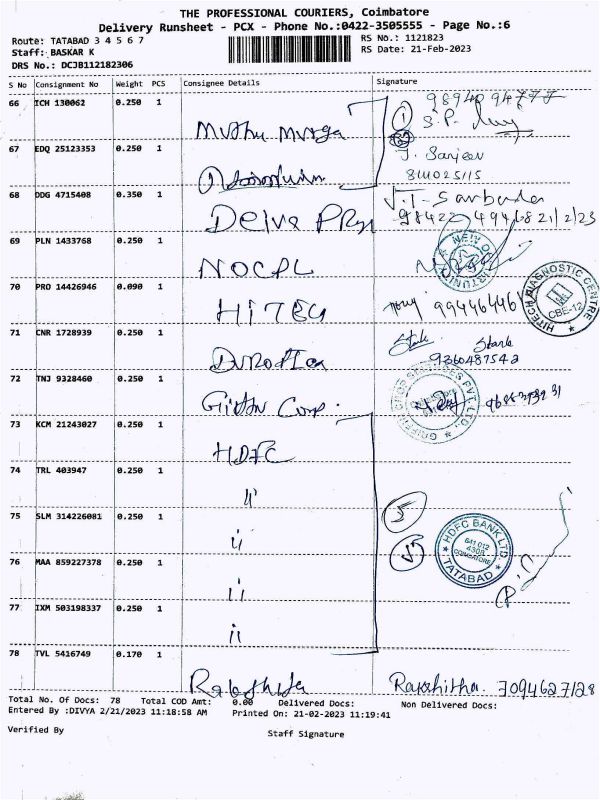 THE PROFESSIONAL COURIERS, Coimbatore
Delivery Runsheet - PCX - Phone No.:0422-3505555 - Page No.:6
Route: TATABAD 3 4 5 6 7
RS No.: 1121823
Staff: BASKAR K
RS Date: 21-Feb-2023
DRS No.: DCJB112182306
S No Consignment No Weight PCS Consignee Details Signature
66 ICH 130062 0.250 1
Muthu Muruga
S.P.
67 EDQ 25123353 0.250 1
J. Sanjeev
68 DDG 4715408 0.350 1
Delva
21/2/23
69 PLN 1433768 0.250 1
NOCPL
70 PRO 14426946 0.090 1
HITECH DIAGNOSTIC CENTRE
CBE-12
71 CNR 1728939 0.250 1
9360487542
72 TNJ 9328460 0.250 1
Corp.
73 KCM 21243027 0.250 1
HDFC
74 TRL 403947 0.250 1
"
75 SLM 314226081 0.250 1
"
5
HDFC BANK LTD.
641 012
COIMBATORE
TATABAD
76 MAA 859227378 0.250 1
"
77 IXM 503198337 0.250 1
"
78 TVL 5416749 0.170 1
Rajashitha. 7094627128
Total No. Of Docs: 78 Total COD Amt: 0.00 Delivered Docs: Non Delivered Docs:
Entered By :DIVYA 2/21/2023 11:18:58 AM Printed On: 21-02-2023 11:19:41
Verified By Staff Signature